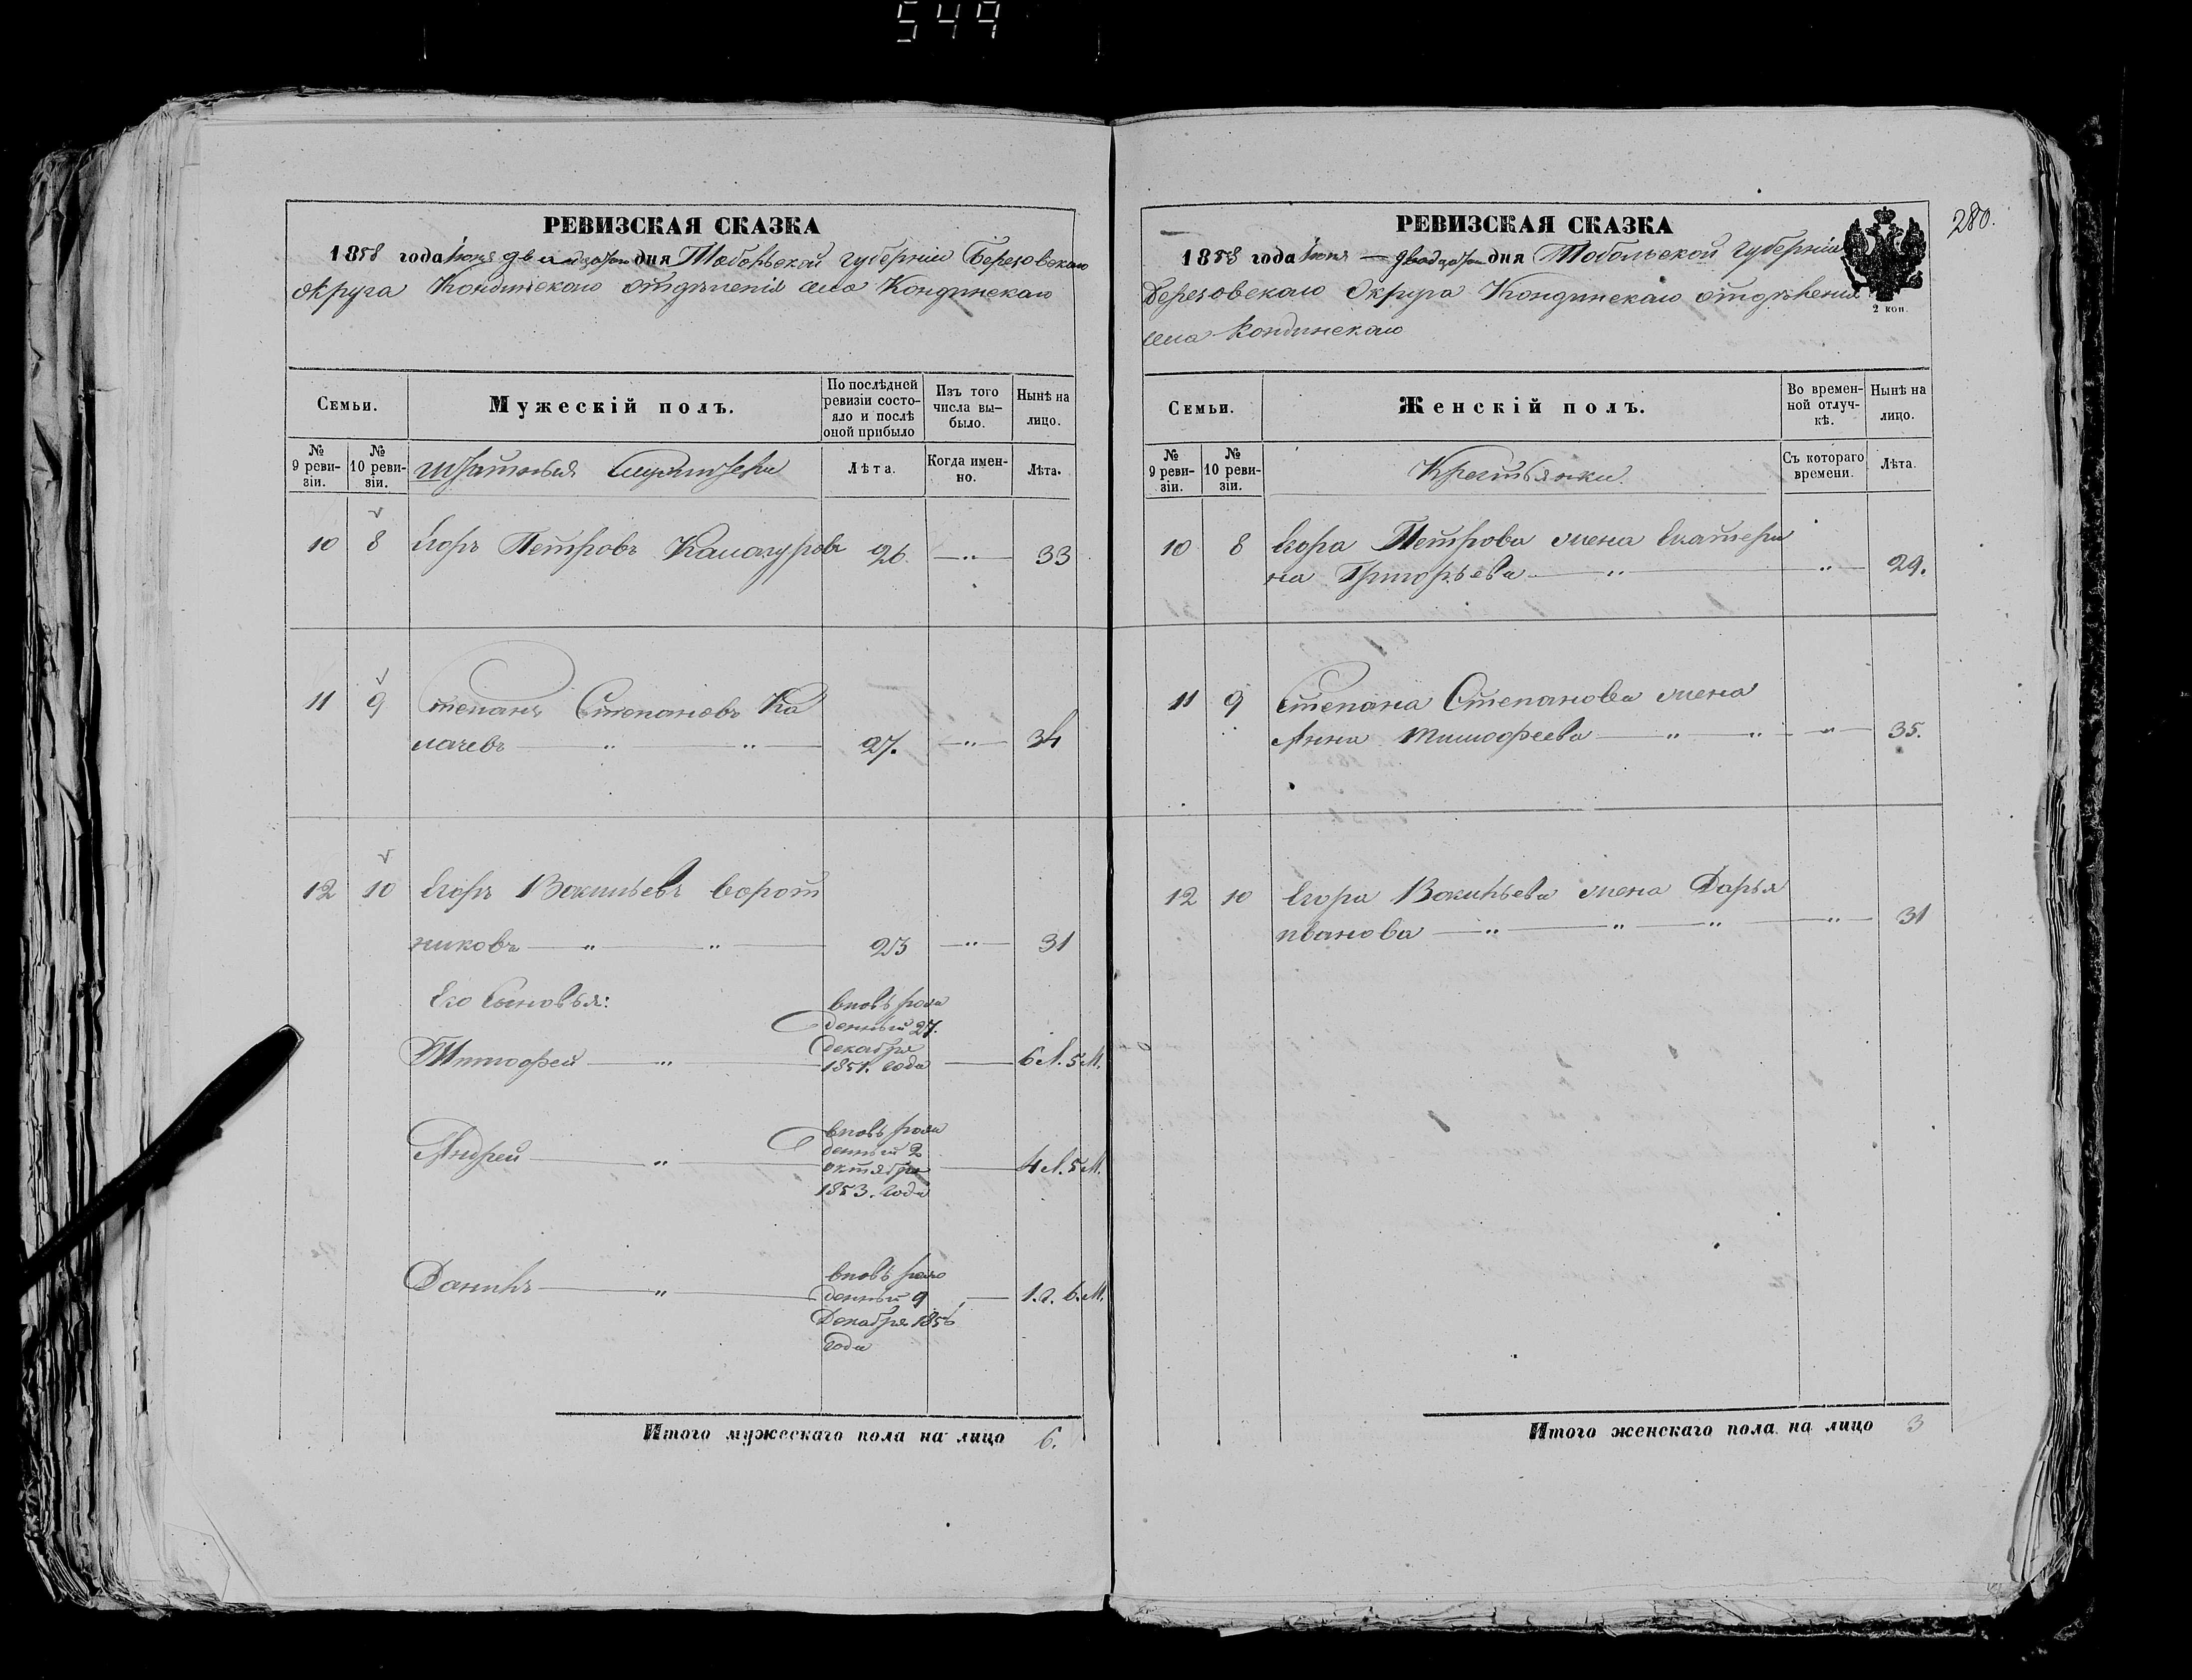 549
РЕВИЗСКАЯ СКАЗКА
1858 года Іюня двадцатаго дня Тобольской губерніи Березовскаго
округа Кондинскаго отдѣленія села Кондинскаго
Семьи.
Мужескій полъ.
По послѣдней
ревизіи состо-
яло и послѣ
оной прибыло
Изъ того
числа вы-
было.
Нынѣ на
лицо.
№
9 реви-
зіи.
№
10 реви-
зіи.
Штатные служители
Лѣта.
Когда имен-
но.
Лѣта.
10 8 Егоръ Петровъ 26. —"— 33
11 9 Степанъ Степановъ Ка
лачевъ — " — " — 27. —"— 34
12 10 Егоръ Васильевъ Ворот
никовъ — " — " — 23 —"— 31
Его сыновья:
вновь рож
денный 27.
декабря
Тимофей — " — 1851. года — 6 л. 5 м.
вновь рож
денный 2
Андрей — " — октября — 4 л. 5 м.
1853. года
вновь рож
Данилъ — " — денный 9 — 1. г. 6. м.
Декабря 1856
года
Итого мужескаго пола на лицо 6.
280.
РЕВИЗСКАЯ СКАЗКА
1858 года Іюня — двадцатаго дня Тобольской губерніи
Березовскаго Округа Кондинскаго отдѣленія
села Кондинскаго
2 коп.
Семьи.
Женскій полъ.
Во времен-
ной отлуч-
кѣ.
Нынѣ на
лицо.
№
9 реви-
зіи.
№
10 реви-
зіи.
Крестьянки
Съ котораго
времени.
Лѣта.
10 8 Егора Петрова жена Екатери
на Григорьева — " — " — 29.
11 9 Степана Степанова жена
Анна Тимофеева — " — " — " — 35.
12 10 Егора Васильева жена Дарья
иванова — " — " — " — " — 31
Итого женскаго пола на лицо 3